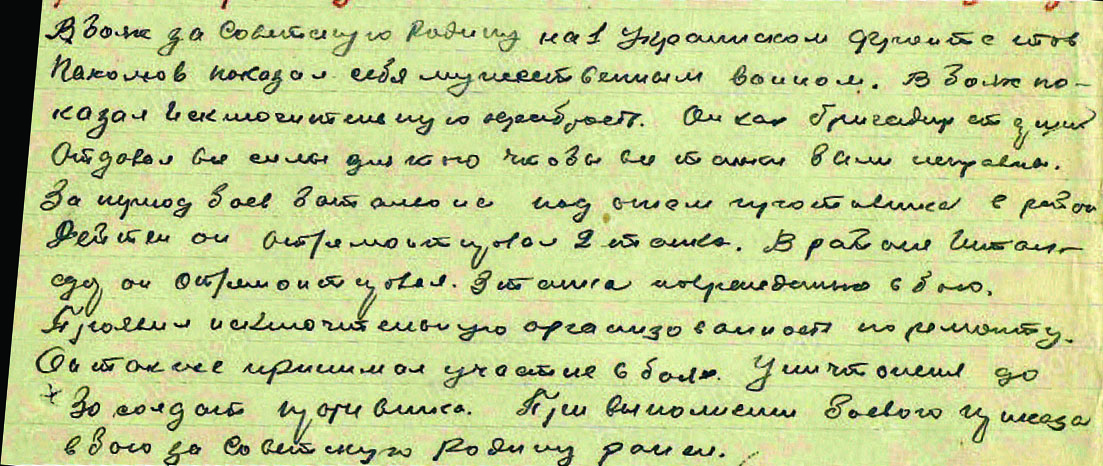 В боях за Советскую Родину на 1 Украинском фронте
Пахомов показал себя мужественным воином. В боях по-
казал исключительную храбрость. Он как бригадир
отдавал все силы для того чтобы все танки были исправны.
За период боев батальона под огнем противника в районе
он отремонтировал 2 танка. В районе
он отремонтировал 3 танка поврежденных в бою.
Проявил исключительную организованность по ремонту.
Он также принимал участие в боях. Уничтожил до
30 солдат противника. При выполнении боевого приказа
в бою за Советскую Родину ранен.